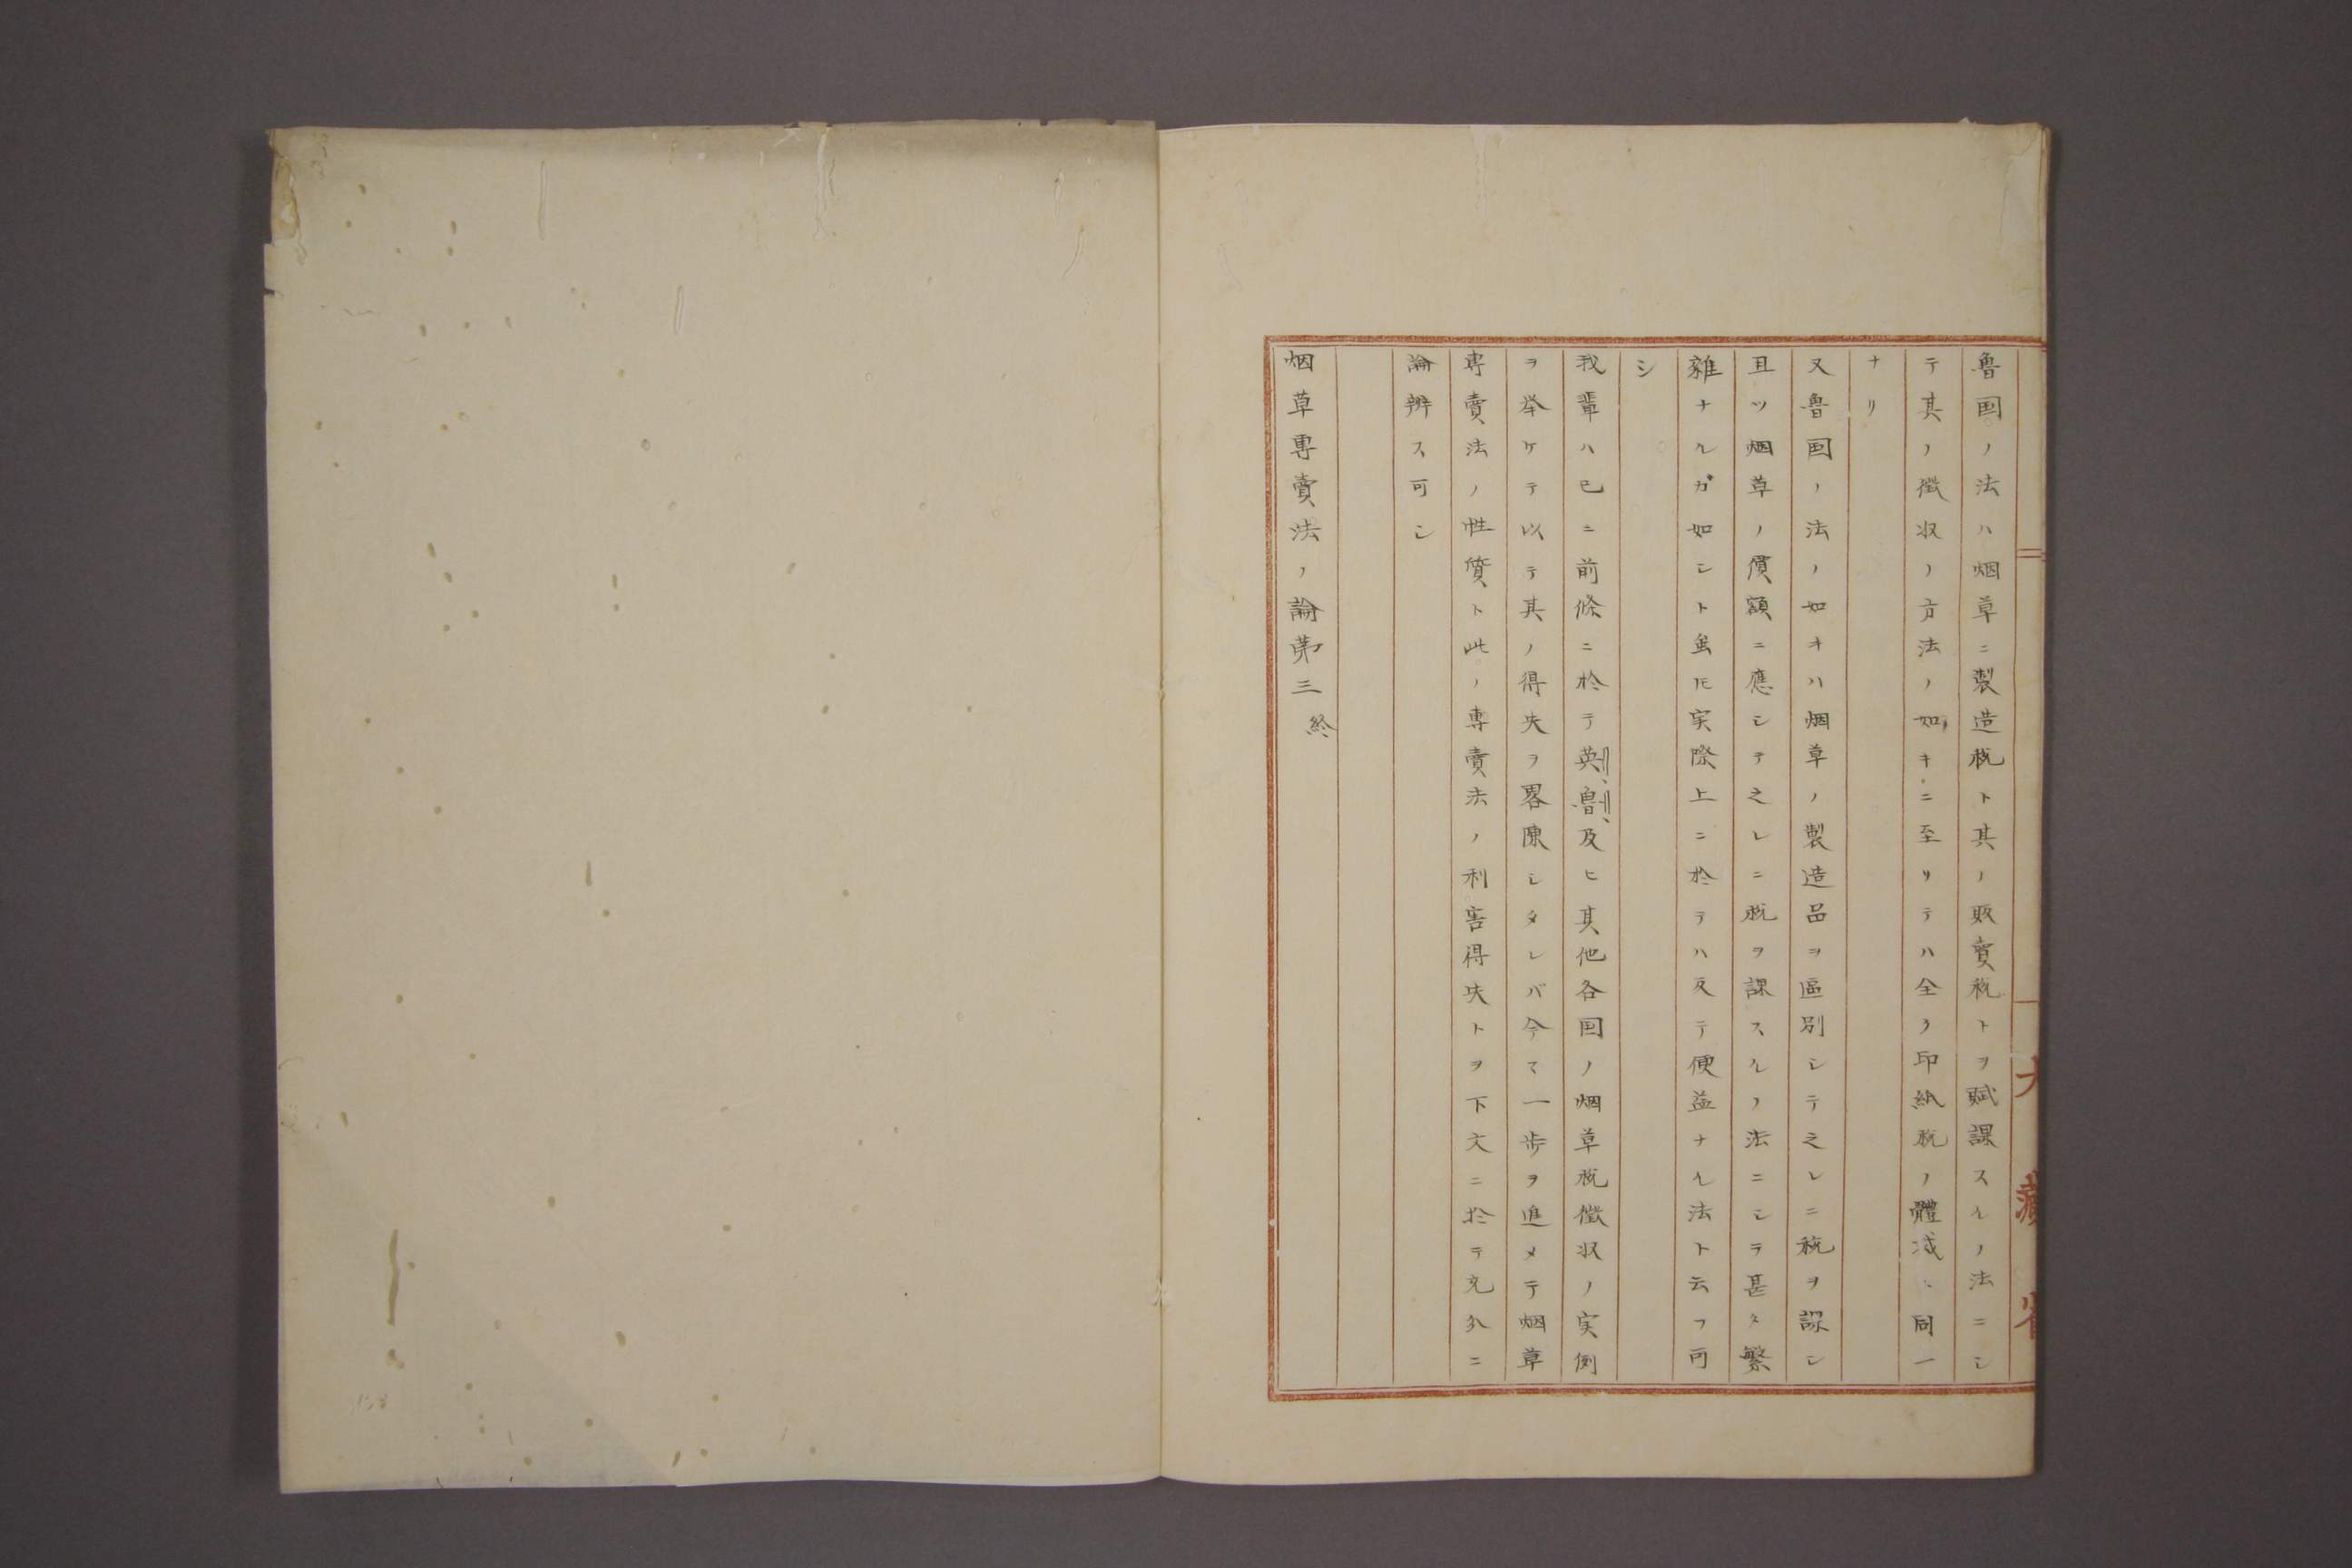 魯国ノ法ハ烟草ニ製造税ト其ノ販賣税トヲ賦課スルノ法ニシ
テ其ノ徴収ノ方法ノ如キニ至リテハ全ク印紙税ノ體裁ニ同一
ナリ
又魯国ノ法ノ如キハ烟草ノ製造品ヲ區別シテ之レニ税ヲ課シ
且ツ烟草ノ價額ニ應シテ之レニ税ヲ課スルノ法ニシテ甚タ繁
雜ナルガ如シト虽𪜈実際上ニ於テハ反テ便益ナル法ト云フ可
シ
我輩ハ已ニ前條ニ於テ英魯及ヒ其他各国ノ烟草税徴収ノ実例
ヲ挙ケテ以テ其ノ得失ヲ畧陳シタレバ今マ一歩ヲ進メテ烟草
専賣法ノ性質ト此ノ專賣法ノ利害得失トヲ下文ニ於テ充分ニ
論辨ス可シ
烟草專賣法ノ論第三終
大藏省